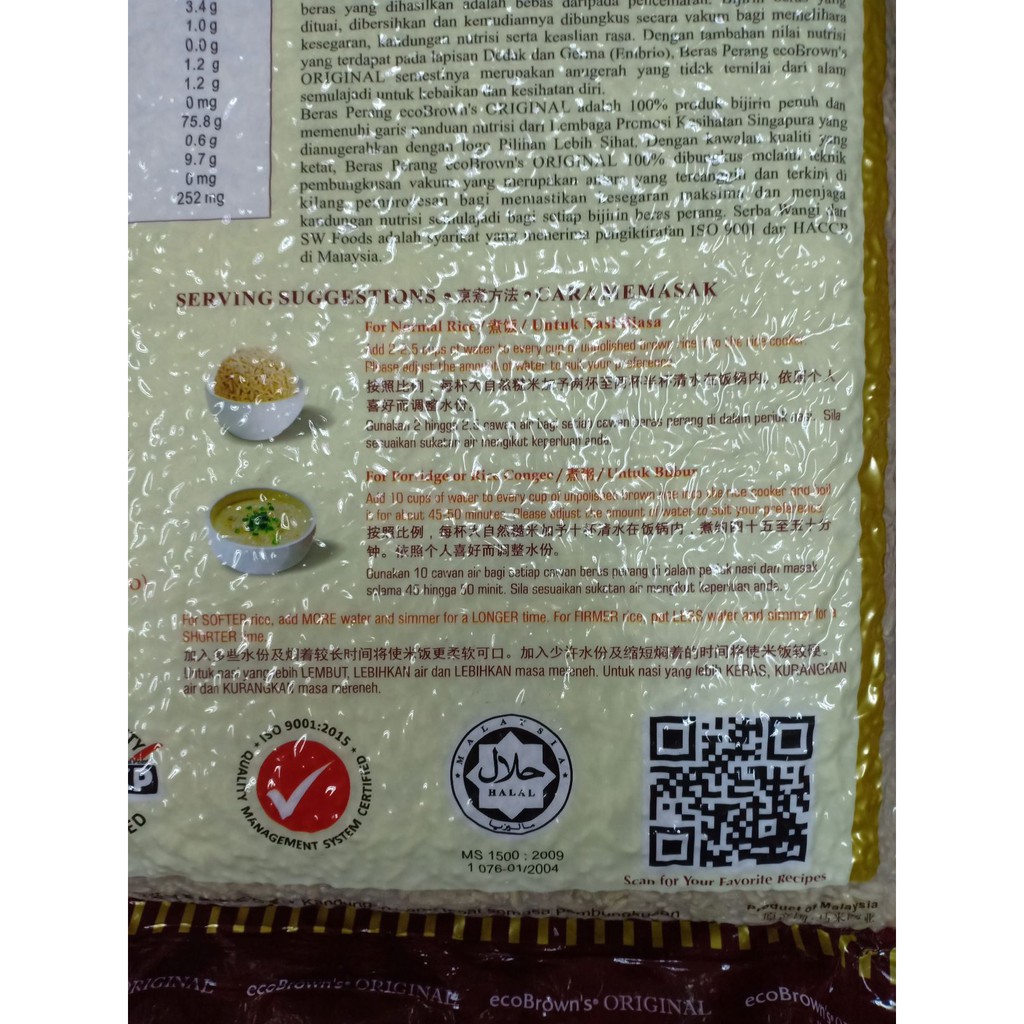 3.4 g
1.0 g
0.0 g
1.2 g
1.2 g
0 mg
75.8 g
0.6 g
9.7 g
0 mg
252 mg
beras yang dihasilkan adalah bebas daripada pencemaran. Bijirin beras yang
dituai, dibersihkan dan kemudiannya dibungkus secara vakum bagi memelihara
kesegaran, kandungan nutrisi serta keaslian rasa. Dengan tambahan nilai nutrisi
yang terdapat pada lapisan Dedak dan Germa (Embrio), Beras Perang ecoBrown's
ORIGINAL semestinya merupakan anugerah yang tidak ternilai dari alam
semulajadi untuk kebaikan dan kesihatan diri.
Beras Perang ecoBrown's ORIGINAL adalah 100% produk bijirin penuh dan
memenuhi garis panduan nutrisi dari Lembaga Promosi Kesihatan Singapura yang
dianugerahkan dengan logo Pilihan Lebih Sihat. Dengan kawalan kualiti yang
ketat, Beras Perang ecoBrown's ORIGINAL 100% dibungkus melalui teknik
pembungkusan vakum yang merupakan antara yang tercanggih dan terkini di
kilang pemprosesan bagi memastikan kesegaran maksima dan menjaga
kandungan nutrisi semulajadi bagi setiap bijirin beras perang. Serba Wangi dan
SW Foods adalah syarikat yang menerima pengiktirafan ISO 9001 dan HACCP
di Malaysia.
SERVING SUGGESTIONS • 烹煮方法 • CARA MEMASAK
For Normal Rice / 煮饭 / Untuk Nasi Biasa
Add 2-2.5 cups of water to every cup of unpolished brown rice into the rice cooker.
Please adjust the amount of water to suit your preference.
按照比例，每杯大自然糙米加予两杯至两杯半杯清水在饭锅内。依照个人
喜好而调整水份。
Gunakan 2 hingga 2.5 cawan air bagi setiap cawan beras perang di dalam periuk nasi. Sila
sesuaikan sukatan air mengikut keperluan anda.
For Porridge or Rice Congee / 煮粥 / Untuk Bubur
Add 10 cups of water to every cup of unpolished brown rice into the rice cooker and boil
it for about 45-50 minutes. Please adjust the amount of water to suit your preference.
按照比例，每杯大自然糙米加予十杯清水在饭锅内，煮约四十五至五十分
钟。依照个人喜好而调整水份。
Gunakan 10 cawan air bagi setiap cawan beras perang di dalam periuk nasi dan masak
selama 45 hingga 50 minit. Sila sesuaikan sukatan air mengikut keperluan anda.
For SOFTER rice, add MORE water and simmer for a LONGER time. For FIRMER rice, put LESS water and simmer for a
SHORTER time.
加入多些水份及焖着较长时间将使米饭更柔软可口。加入少许水份及缩短焖着的时间将使米饭较硬。
Untuk nasi yang lebih LEMBUT, LEBIHKAN air dan LEBIHKAN masa mereneh. Untuk nasi yang lebih KERAS, KURANGKAN
air dan KURANGKAN masa mereneh.
ISO 9001:2015
QUALITY MANAGEMENT SYSTEM CERTIFIED
MALAYSIA
حلال
HALAL
ماليزيا
MS 1500 : 2009
1 076-01/2004
Scan for Your Favorite Recipes
Product of Malaysia
马来西亚
ORIGINAL
ecoBrown's ORIGINAL
ecoBrown's ORIGINAL
ecoBrown's